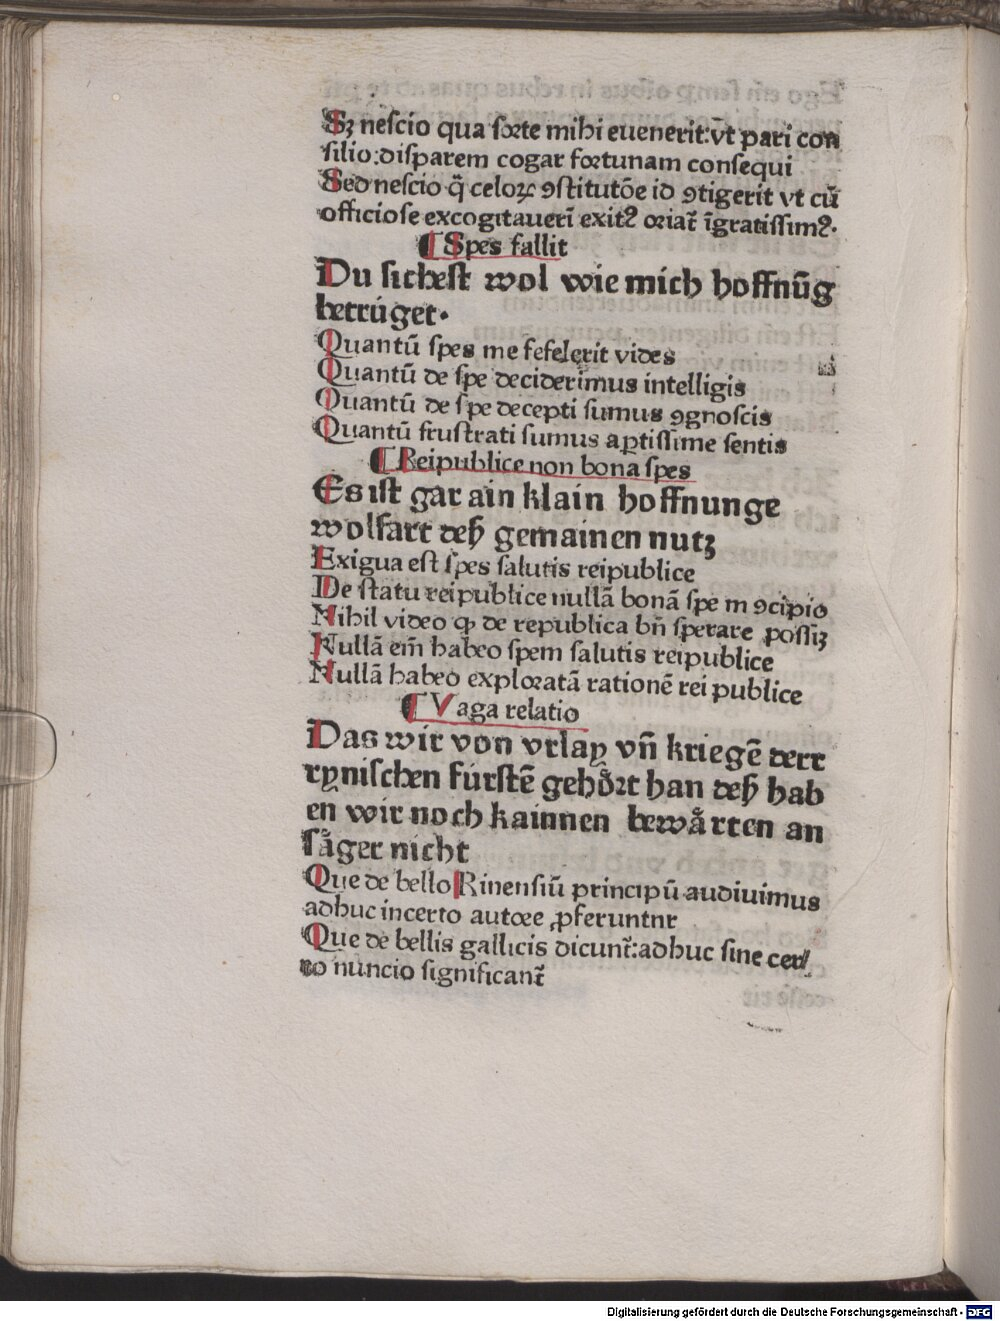 Sꝫ nescio qua sorte mihi euenerit:vt pari con
silio:disparem cogar fortunam consequi
Sed nescio q̃ celoꝝ ꝯstitutõe id ꝯtigerit vt cũ
officiose excogitauerĩ exitꝰ oriat᷑ ĩgratissimꝰ.
¶ Spes fallit
Du sichest wol wie mich hoffnũg
betrúget.
Quantũ spes me fefelerit vides
Quantũ de spe deciderimus intelligis
Quantũ de spe decepti sumus ꝯgnoscis
Quantũ frustrati sumus aꝑtissime sentis
¶ Reipublice non bona spes
Es ist gar ain klain hoffnunge
wolfart deß gemainen nutz
Exigua est spes salutis reipublice
De statu reipublice nullã bonã spe m ꝯcipio
Nihil video ꝙ de republica bñ sperare possiꝫ
Nullã em̃ habeo spem salutis reipublice
Nullã habeo exploratã rationẽ rei publice
¶ Vaga relatio
Das wir von vrlay vñ kriegẽ derr
rynischen fúrstẽ gehoͤrt han deß hab
en wir noch kainnen bewaͤrten an
saͤger nicht
Que de bello Rinensiũ principũ audiuimus
adhuc incerto autore ꝓferuntnr
Que de bellis gallicis dicunt᷑:adhuc sine cer/
to nuncio significant᷑
Digitalisierung gefördert durch die Deutsche Forschungsgemeinschaft - DFG